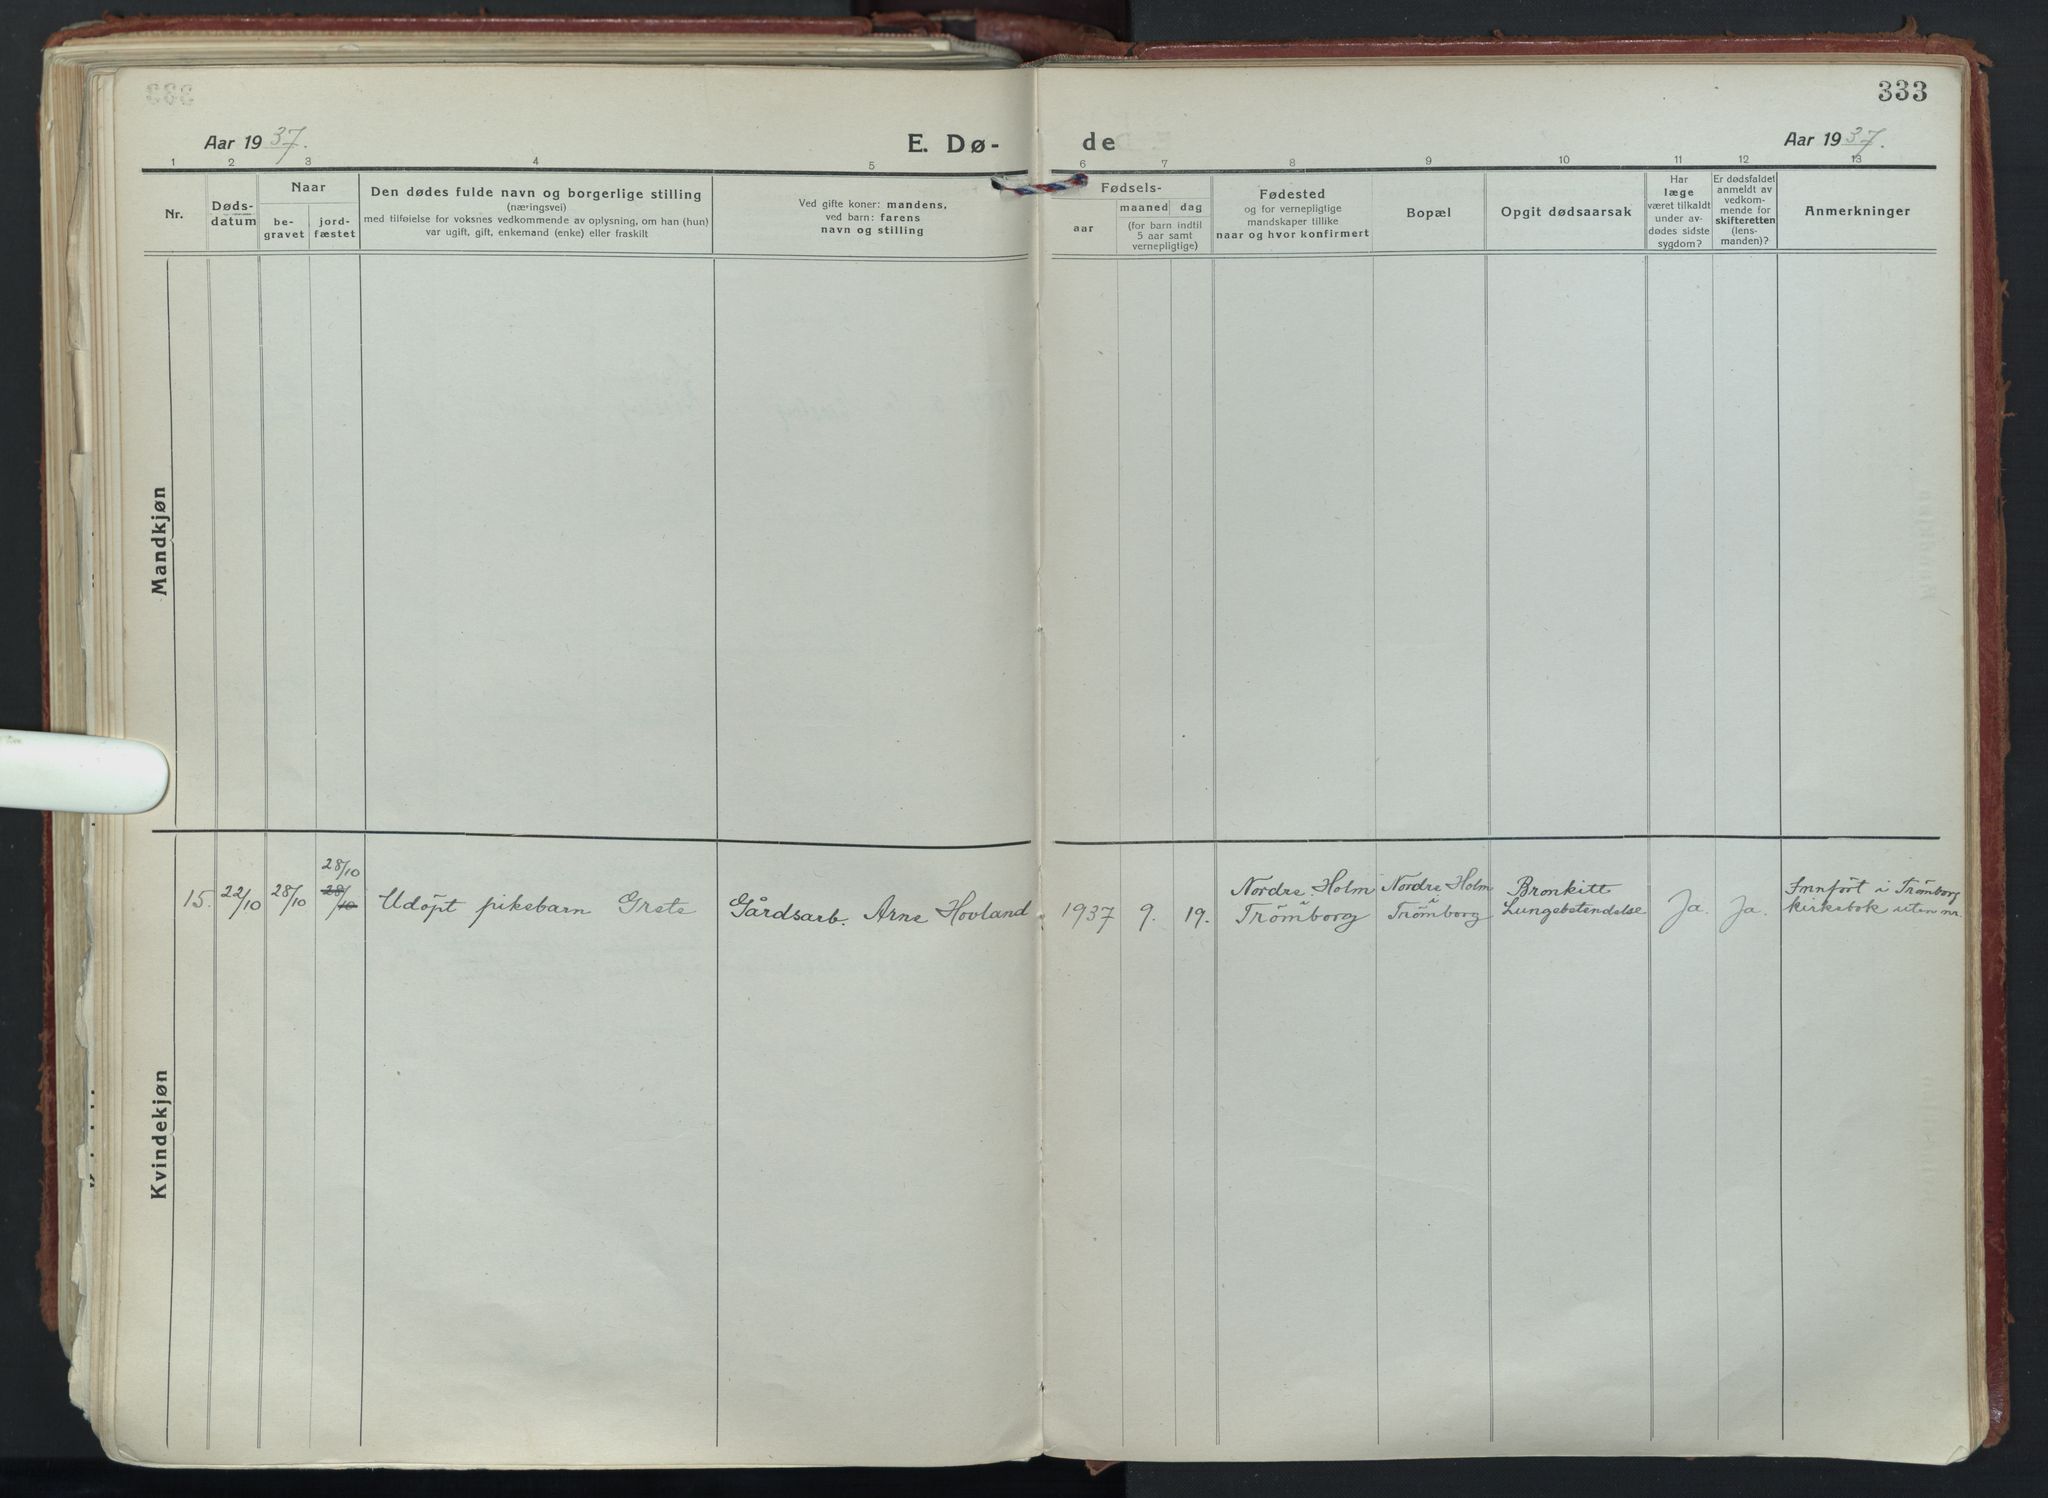 333
Aar 1937.
E. Dø-
de
Aar 1937.
1 2 3 4 5 6 7 8 9 10 11 12 13
Nr.
Døds-
datum
Naar
be-
gravet
jord-
fæstet
Den dødes fulde navn og borgerlige stilling
(næringsvei)
med tilføielse for voksnes vedkommende av oplysning, om han (hun)
var ugift, gift, enkemand (enke) eller fraskilt
Ved gifte koner: mandens,
ved barn: farens
navn og stilling
Fødsels-
aar
maaned dag
(for barn indtil
5 aar samt
vernepligtige)
Fødested
og for vernepligtige
mandskaper tillike
naar og hvor konfirmert
Bopæl
Opgit dødsaarsak
Har
læge
været tilkaldt
under av-
dødes sidste
sygdom?
Er dødsfaldet
anmeldt av
vedkom-
mende for
skifteretten
(lens-
manden)?
Anmerkninger
Mandkjøn
Kvindekjøn
15. 22/10 28/10
28/10
28/10
Udöpt pikebarn Grete
Gårdsarb. Arne Hovland
1937 9. 19.
Nordre Holm
i
Trömborg
Nordre Holm
i
Trömborg
Bronkitt
Lungebetendelse
Ja.
Ja.
Innfört i Trömborg
kirkebok uten nr.